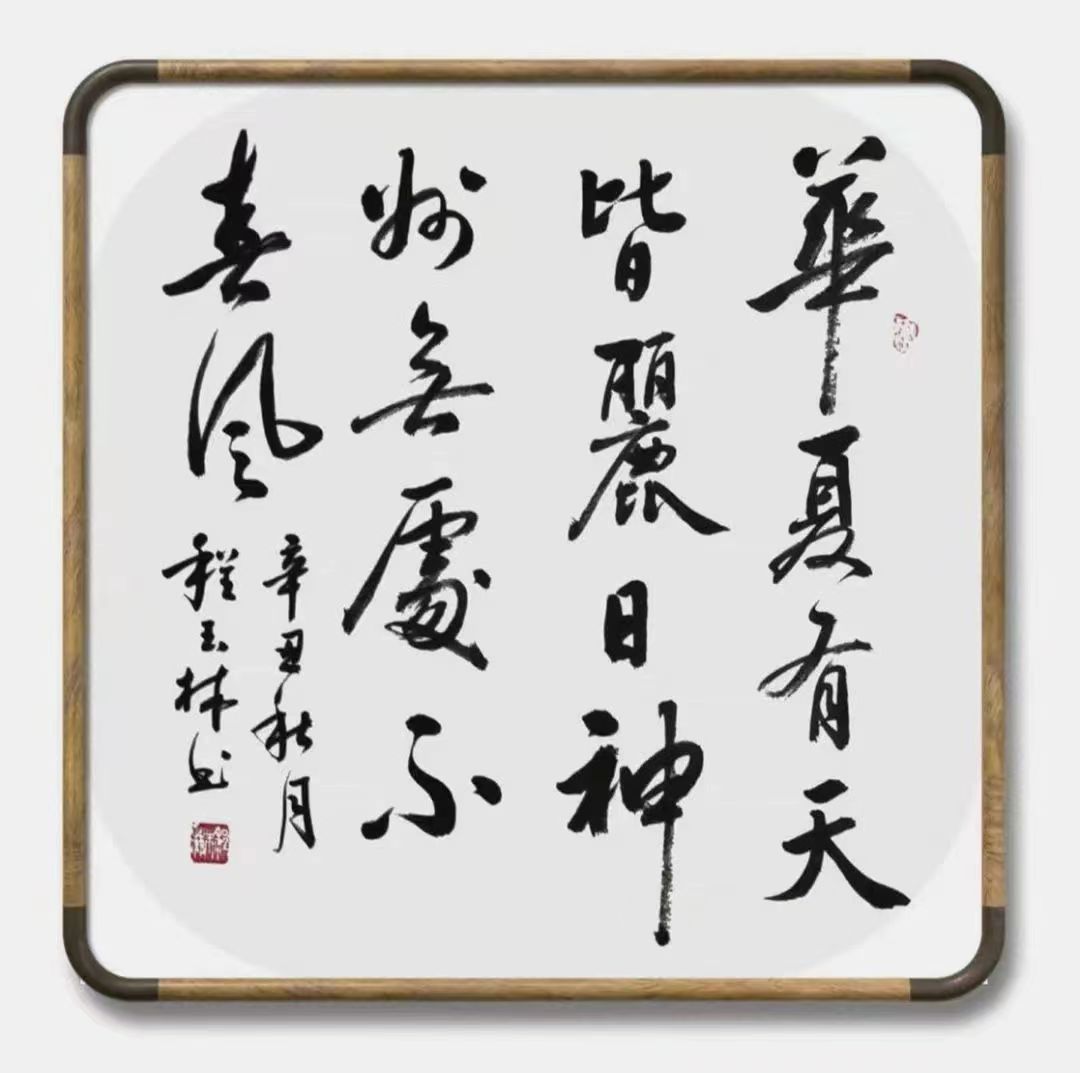 華夏有天
皆麗日神
州無處不
春風
辛丑秋月
程玉林书